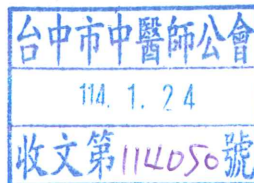 台中市中醫師公會
114. 1. 24
收文第114050號